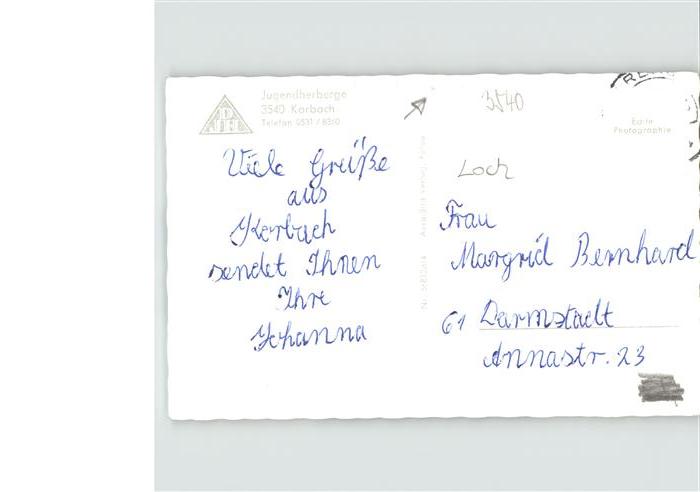 Jugendherberge
3540 Korbach
Telefon 0531 / 8360
Viele Grüße
aus
Korbach
sendet Ihnen
Ihre
Johanna
3540
Echte
Photographie
Loch
Frau
Margrid Bernhard
61 Darmstadt
Annastr. 23